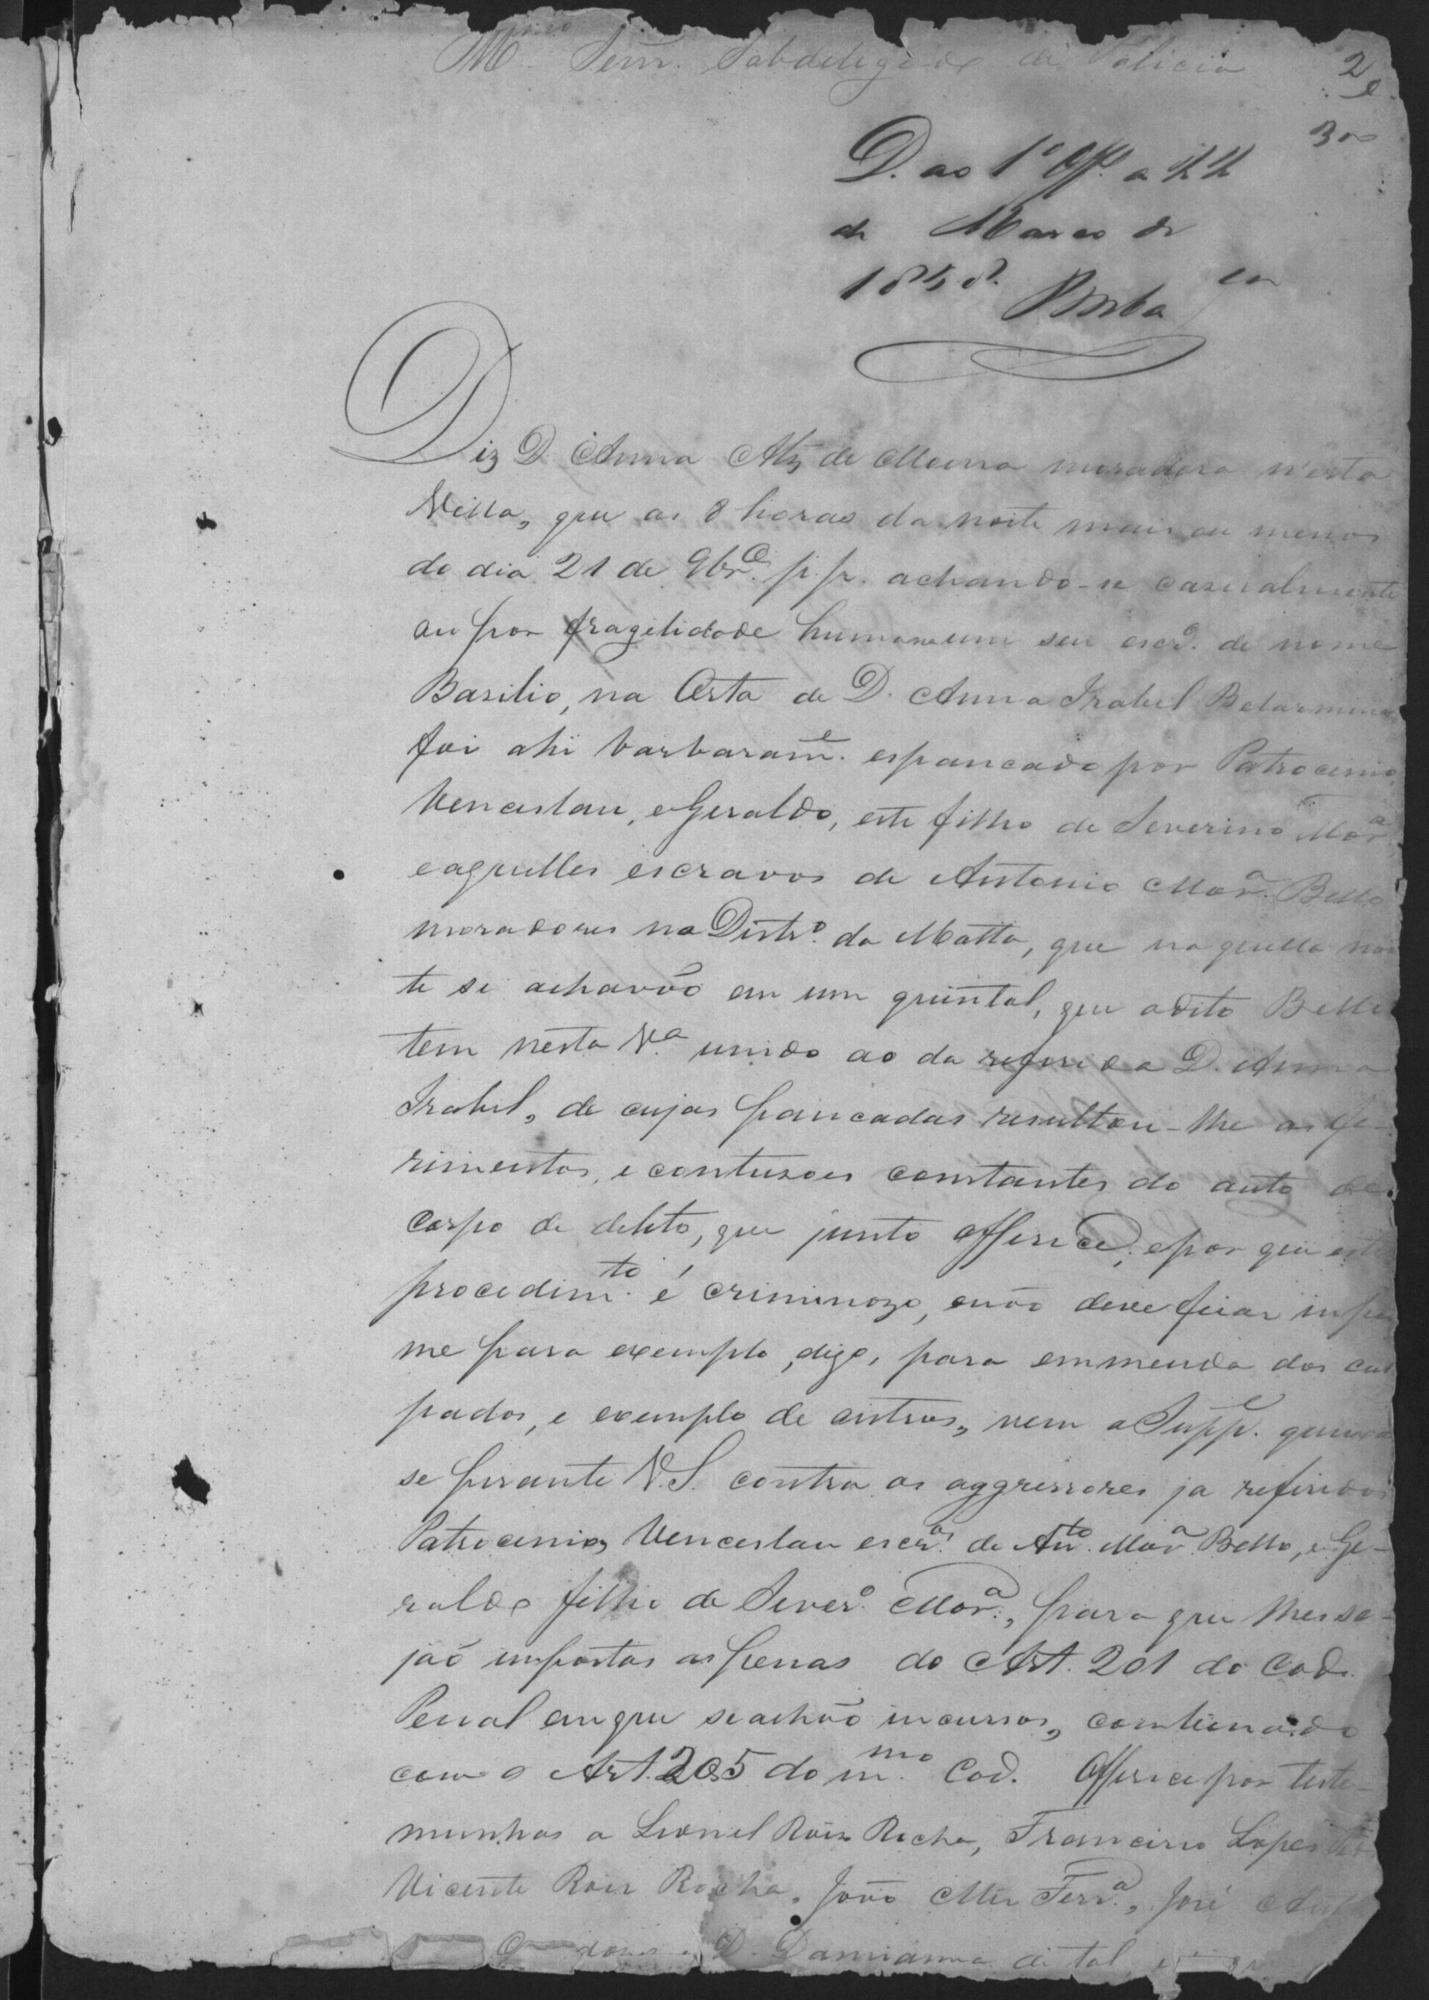 Mmo. Senr. Subdelegado de Policia
2
300
D. ao 1º Off. a 22
de Março de
1858. Borba
Diz D. Anna Alz de Moura moradora n'esta
Villa, que as 8 horas da noite mais ou menos
do dia 21 de 9brº p.p. achando-se casualmente
ou por fragilidade humana um seu escrº de nome
Basilio, na Orta de D. Anna Izabel Belarmina
foi ahi barbarame. espancado por Patrocinio,
Venceslau, e Geraldo, este filho de Severino Mora.
e aquelles escravos de Antonio Mora. Bello
moradores no Distrº. da Matta, que naquella noi
te se achavão em um quintal, que o dito Bello
tem nesta Vª unido ao da referida D. Anna
Izabel, de cujas pancadas resultou-lhe os fe-
rimentos, e contusoes constantes do auto de
corpo de delito, que junto offerece; e por que este
procedimto. é criminozo, e não deve ficar impu
ne para exemplo, digo, para emmenda dos cul
pados, e exemplo de outros, vem a Suppe. queixar
se perante V.S. contra os aggressores ja referidos
Patrocinio, Venceslau escros. de Anto. Mora. Bello, e Ge-
raldo filho de Severº. Mora., para que lhes se-
jão impostas as penas do Art. 201 do Cod.
Penal em que se achão incursos, combinado
com o Art. 205 do mmo. Cod. Offerece por teste-
munhas a Leonel Roiz Rocha, Francisco Lopes
Vicente Roiz Rocha, João Mer Ferra., José
D. Damianna de tal, e